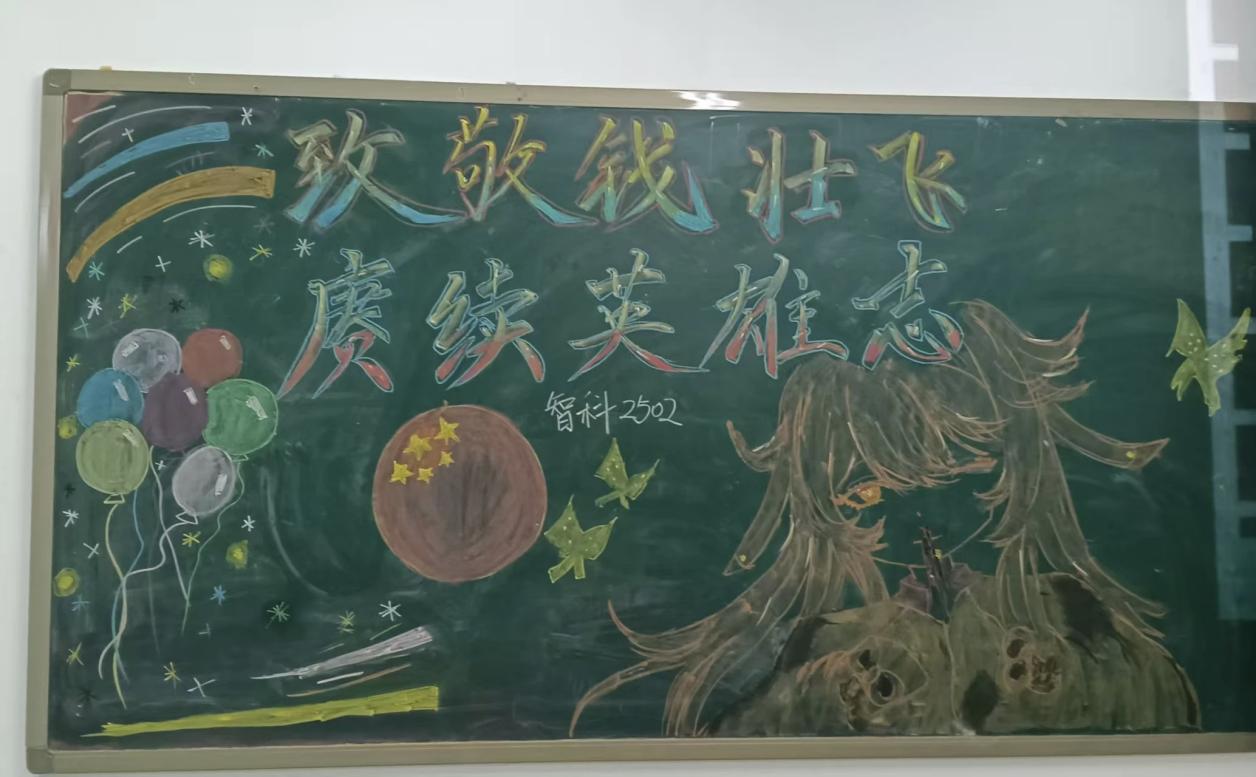 致敬钱壮飞
赓续英雄志
智科2502